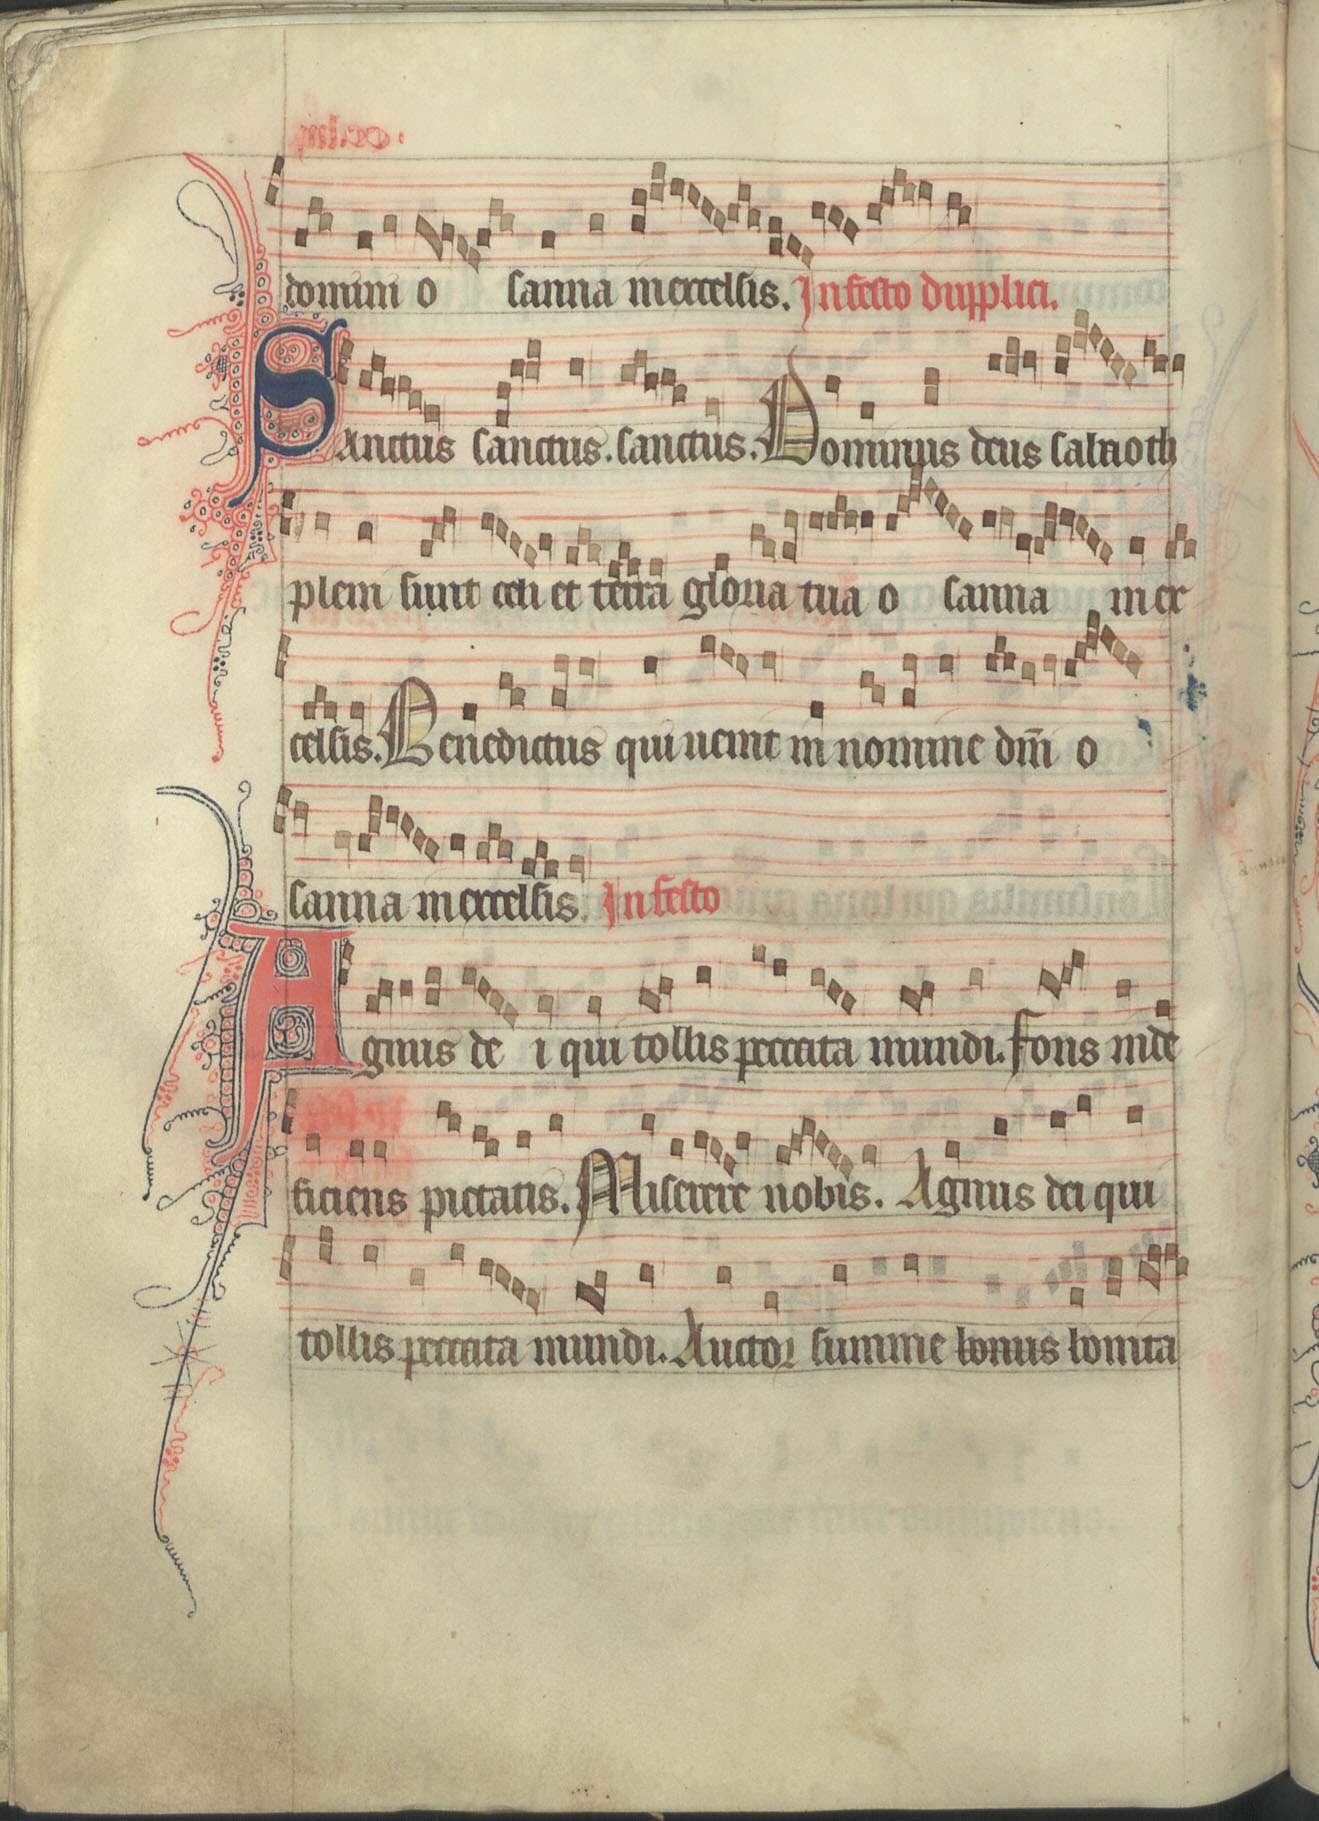 domini o sanna inexcelsis. In festo dupplici.
Sanctus sanctus. sanctus. Dominus deus sabaoth
pleni sunt celi et terra gloria tua o sanna in ex
celsis. Benedictus qui uenit in nomine dm̄ o
sanna inexcelsis. In festo
Agnus de i qui tollis peccata mundi. Fons inde
ficiens pietatis. Miserere nobis. Agnus dei qui
tollis peccata mundi. Auctor summe bonus bonita